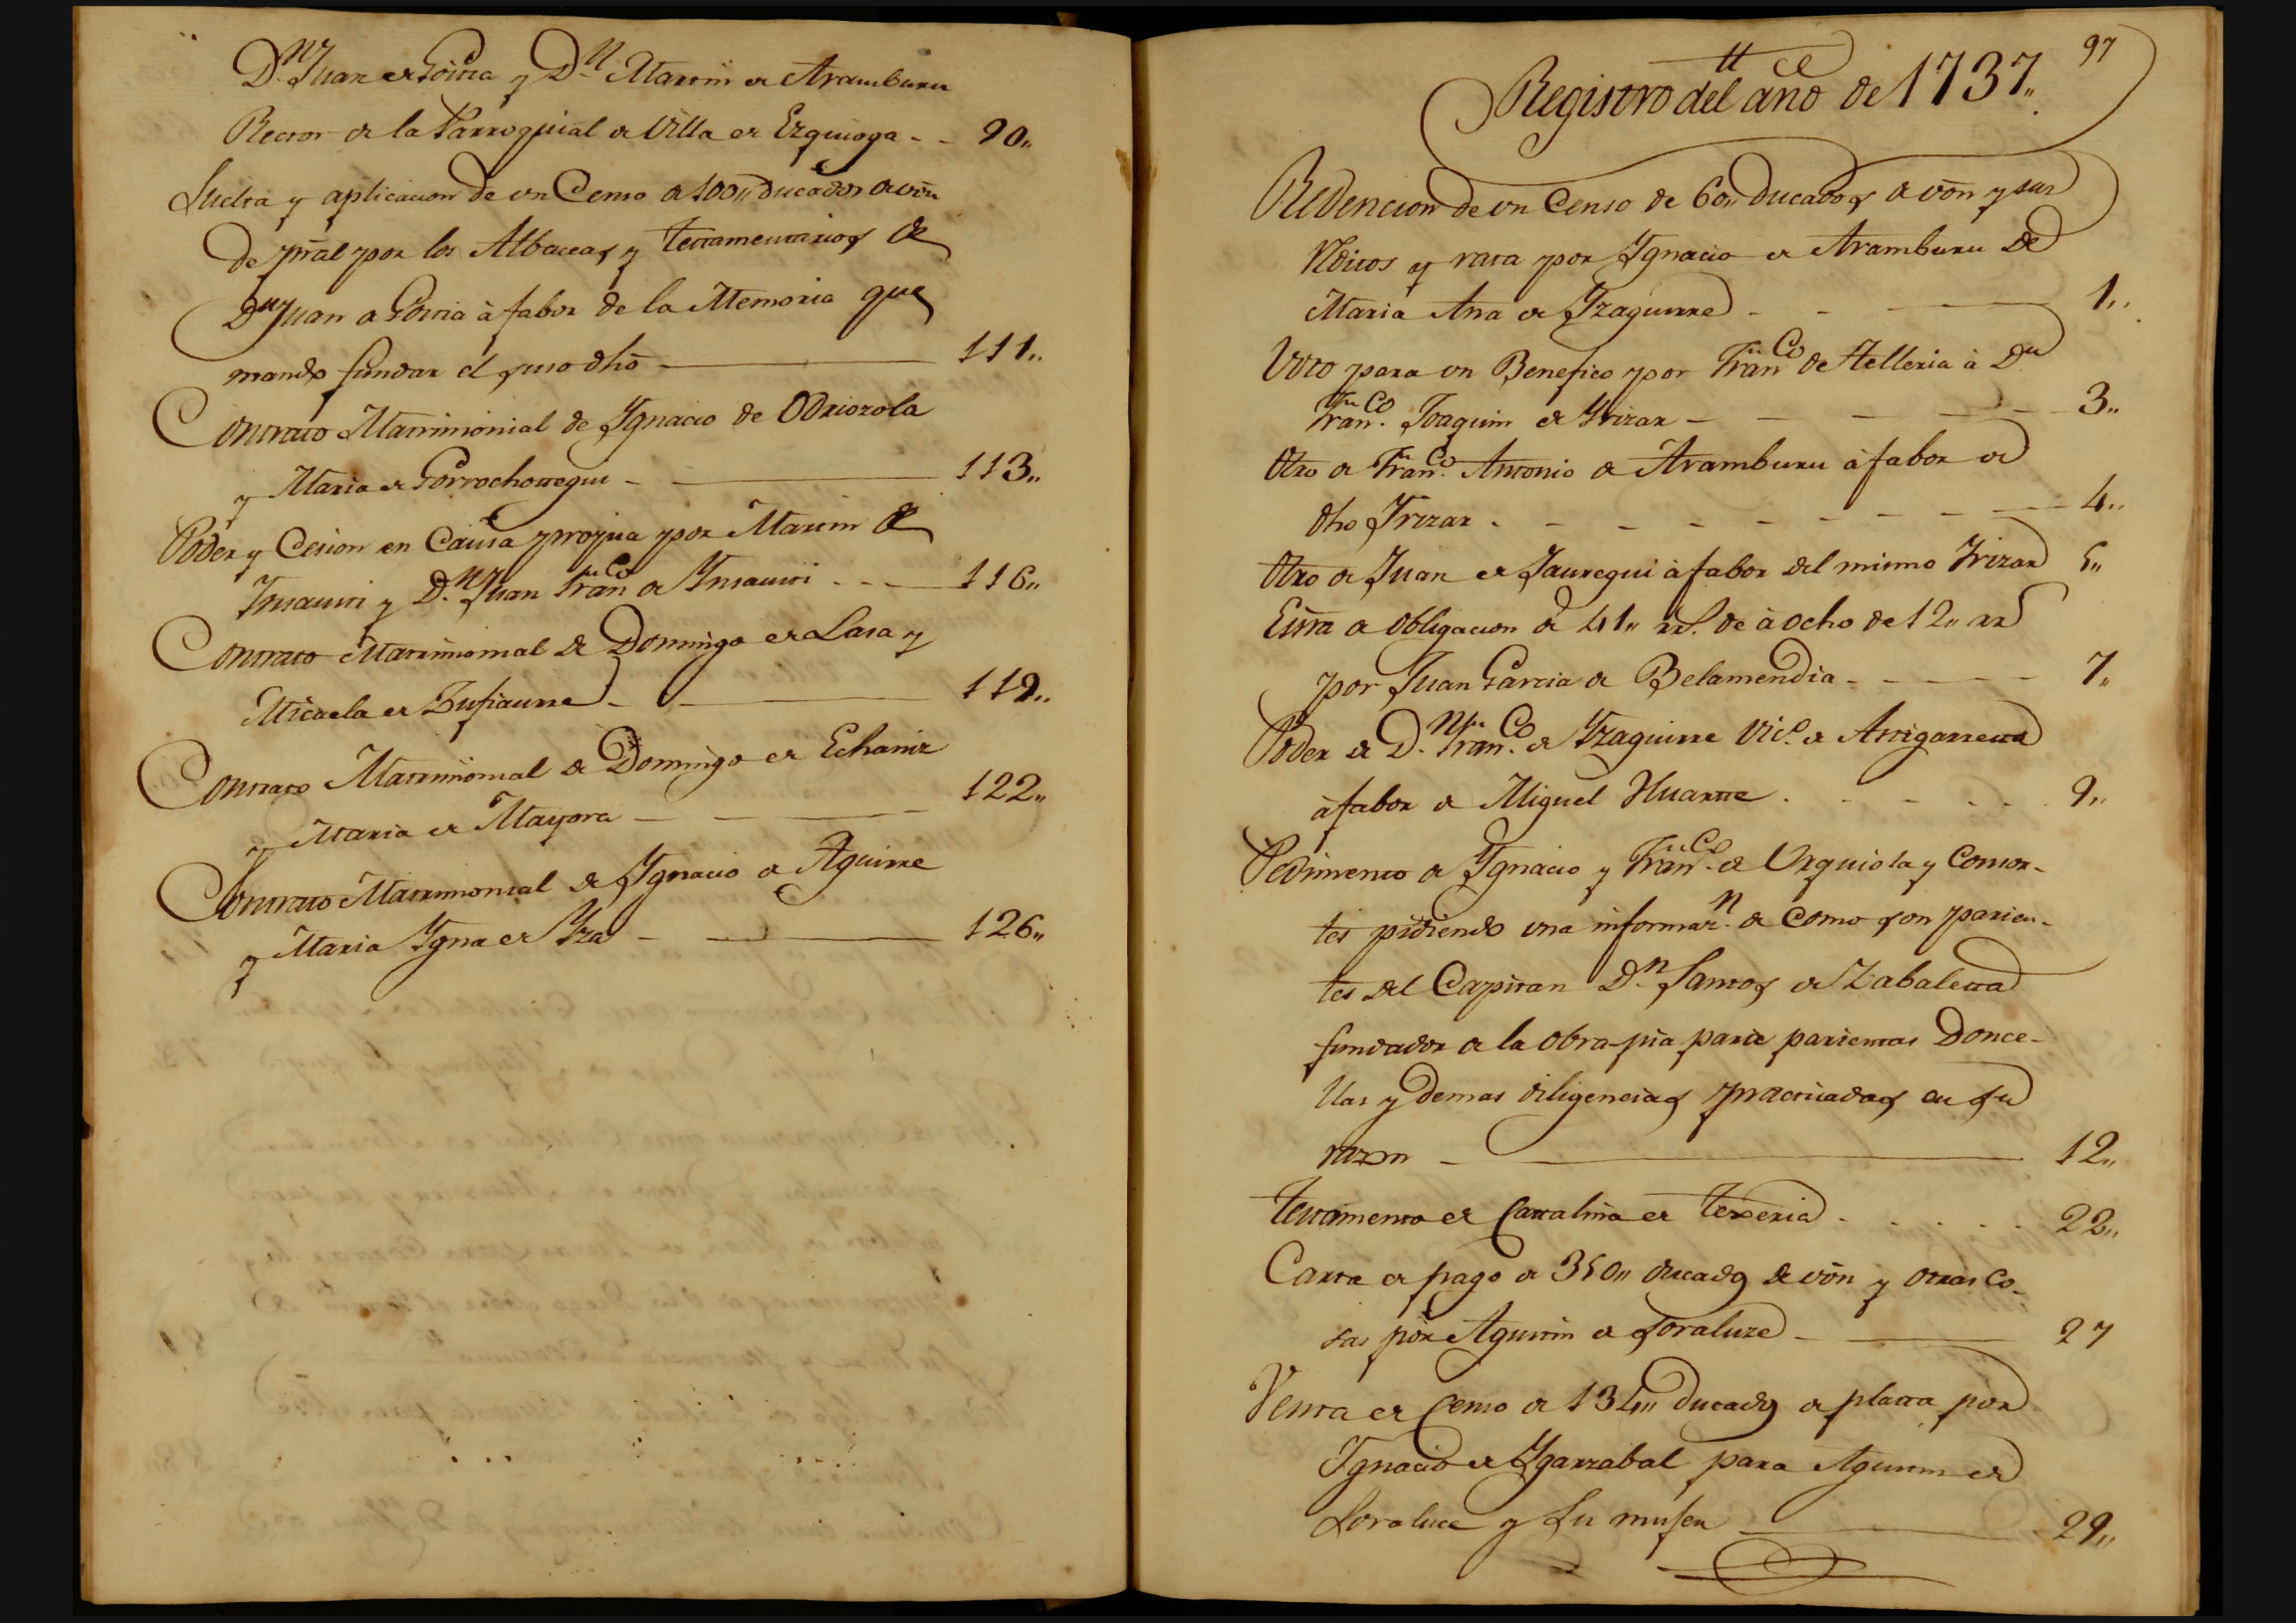 Dn Juan de Goitia y Dn Martin de Aramburu
Rector de la Parroquial de Villa de Ezquioga - - 90,,
Suelta y aplicacion de un Censo de 100,, ducados de von
de pral por los Albaceas y testamentarios de
Dn Juan de Goitia à fabor de la Memoria que
mando fundar el suso dho — 111,,
Contrato Matrimonial de Ygnacio de Odriozola
y Maria de Gorrochotegui - — 113,,
Poder y Cesion en Causa propia por Martin de
Insausti y Dn Juan Franco de Insausti - - — 116,,
Contrato Matrimonial de Domingo de Lasa y
Micaela de Zufiaurre - — 119,,
Contrato Matrimonial de Domingo de Echaniz
y Maria de Mayora — — — 122,,
Contrato Matrimonial de Ygnacio de Aguirre
y Maria Ygna de Yza - — 126,,
97
Registro del año de 1737,,
Redencion de un Censo de 60,, ducados de von y sus
Rditos y rata por Ygnacio de Aramburu de
Maria Ana de Yzaguirre - - - — 1,,
Voto para un Benefico por Franco de Telleria à Dn
Franco. Joaquin de Yrizar — — — — — 3,,
Otro de Franco. Antonio de Aramburu à fabor de
dho Yrizar . - - - - - - - — 4,,
Otro de Juan de Jauregui à fabor del mismo Yrizar 5,,
Essra de obligacion de 41,, rs. de à ocho de 12,, rs
por Juan Garcia de Belamendia - - - - — 7,,
Poder de Dn. Franco. de Yzaguirre Vico. de Astigarreta
à fabor de Miguel Huarte . - - - . . 9,,
Pedimento de Ygnacio y Franco. de Urquiola y Consor-
tes pidiendo una informazn. de como son parien-
tes del Capitan Dn Santos de Zabaleta
fundador de la obra-pia para parientas Donce-
llas y demas diligencias practicadas en su
razon — 12,,
Testamento de Cattalina de Texeria . . . . . 22,,
Carta de pago de 350,, ducads de von y otras co-
sas por Agustin de Loraluze - — 27
Venta de Censo de 134,, ducads de platta por
Ygnacio de Ygarzabal para Agustin de
Loraluce y su muger — 29,,